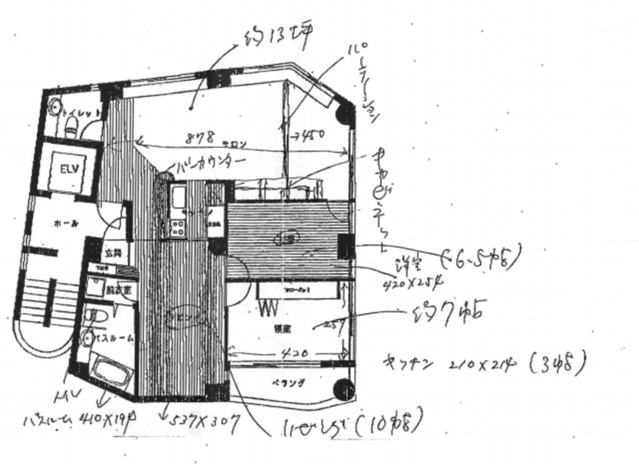 約13坪
パーテーション
トイレット
878
サロン
→450
バーカウンター
キャビネット
ELV
キッチン
ホール
玄関
洋室
(6.5帖)
420×254
脱衣室
リビング
寝室
257
約7帖
バスルーム
420
キッチン 210×214 (3帖)
ベランダ
バスルーム 410×194
537×307
リビング(10帖)